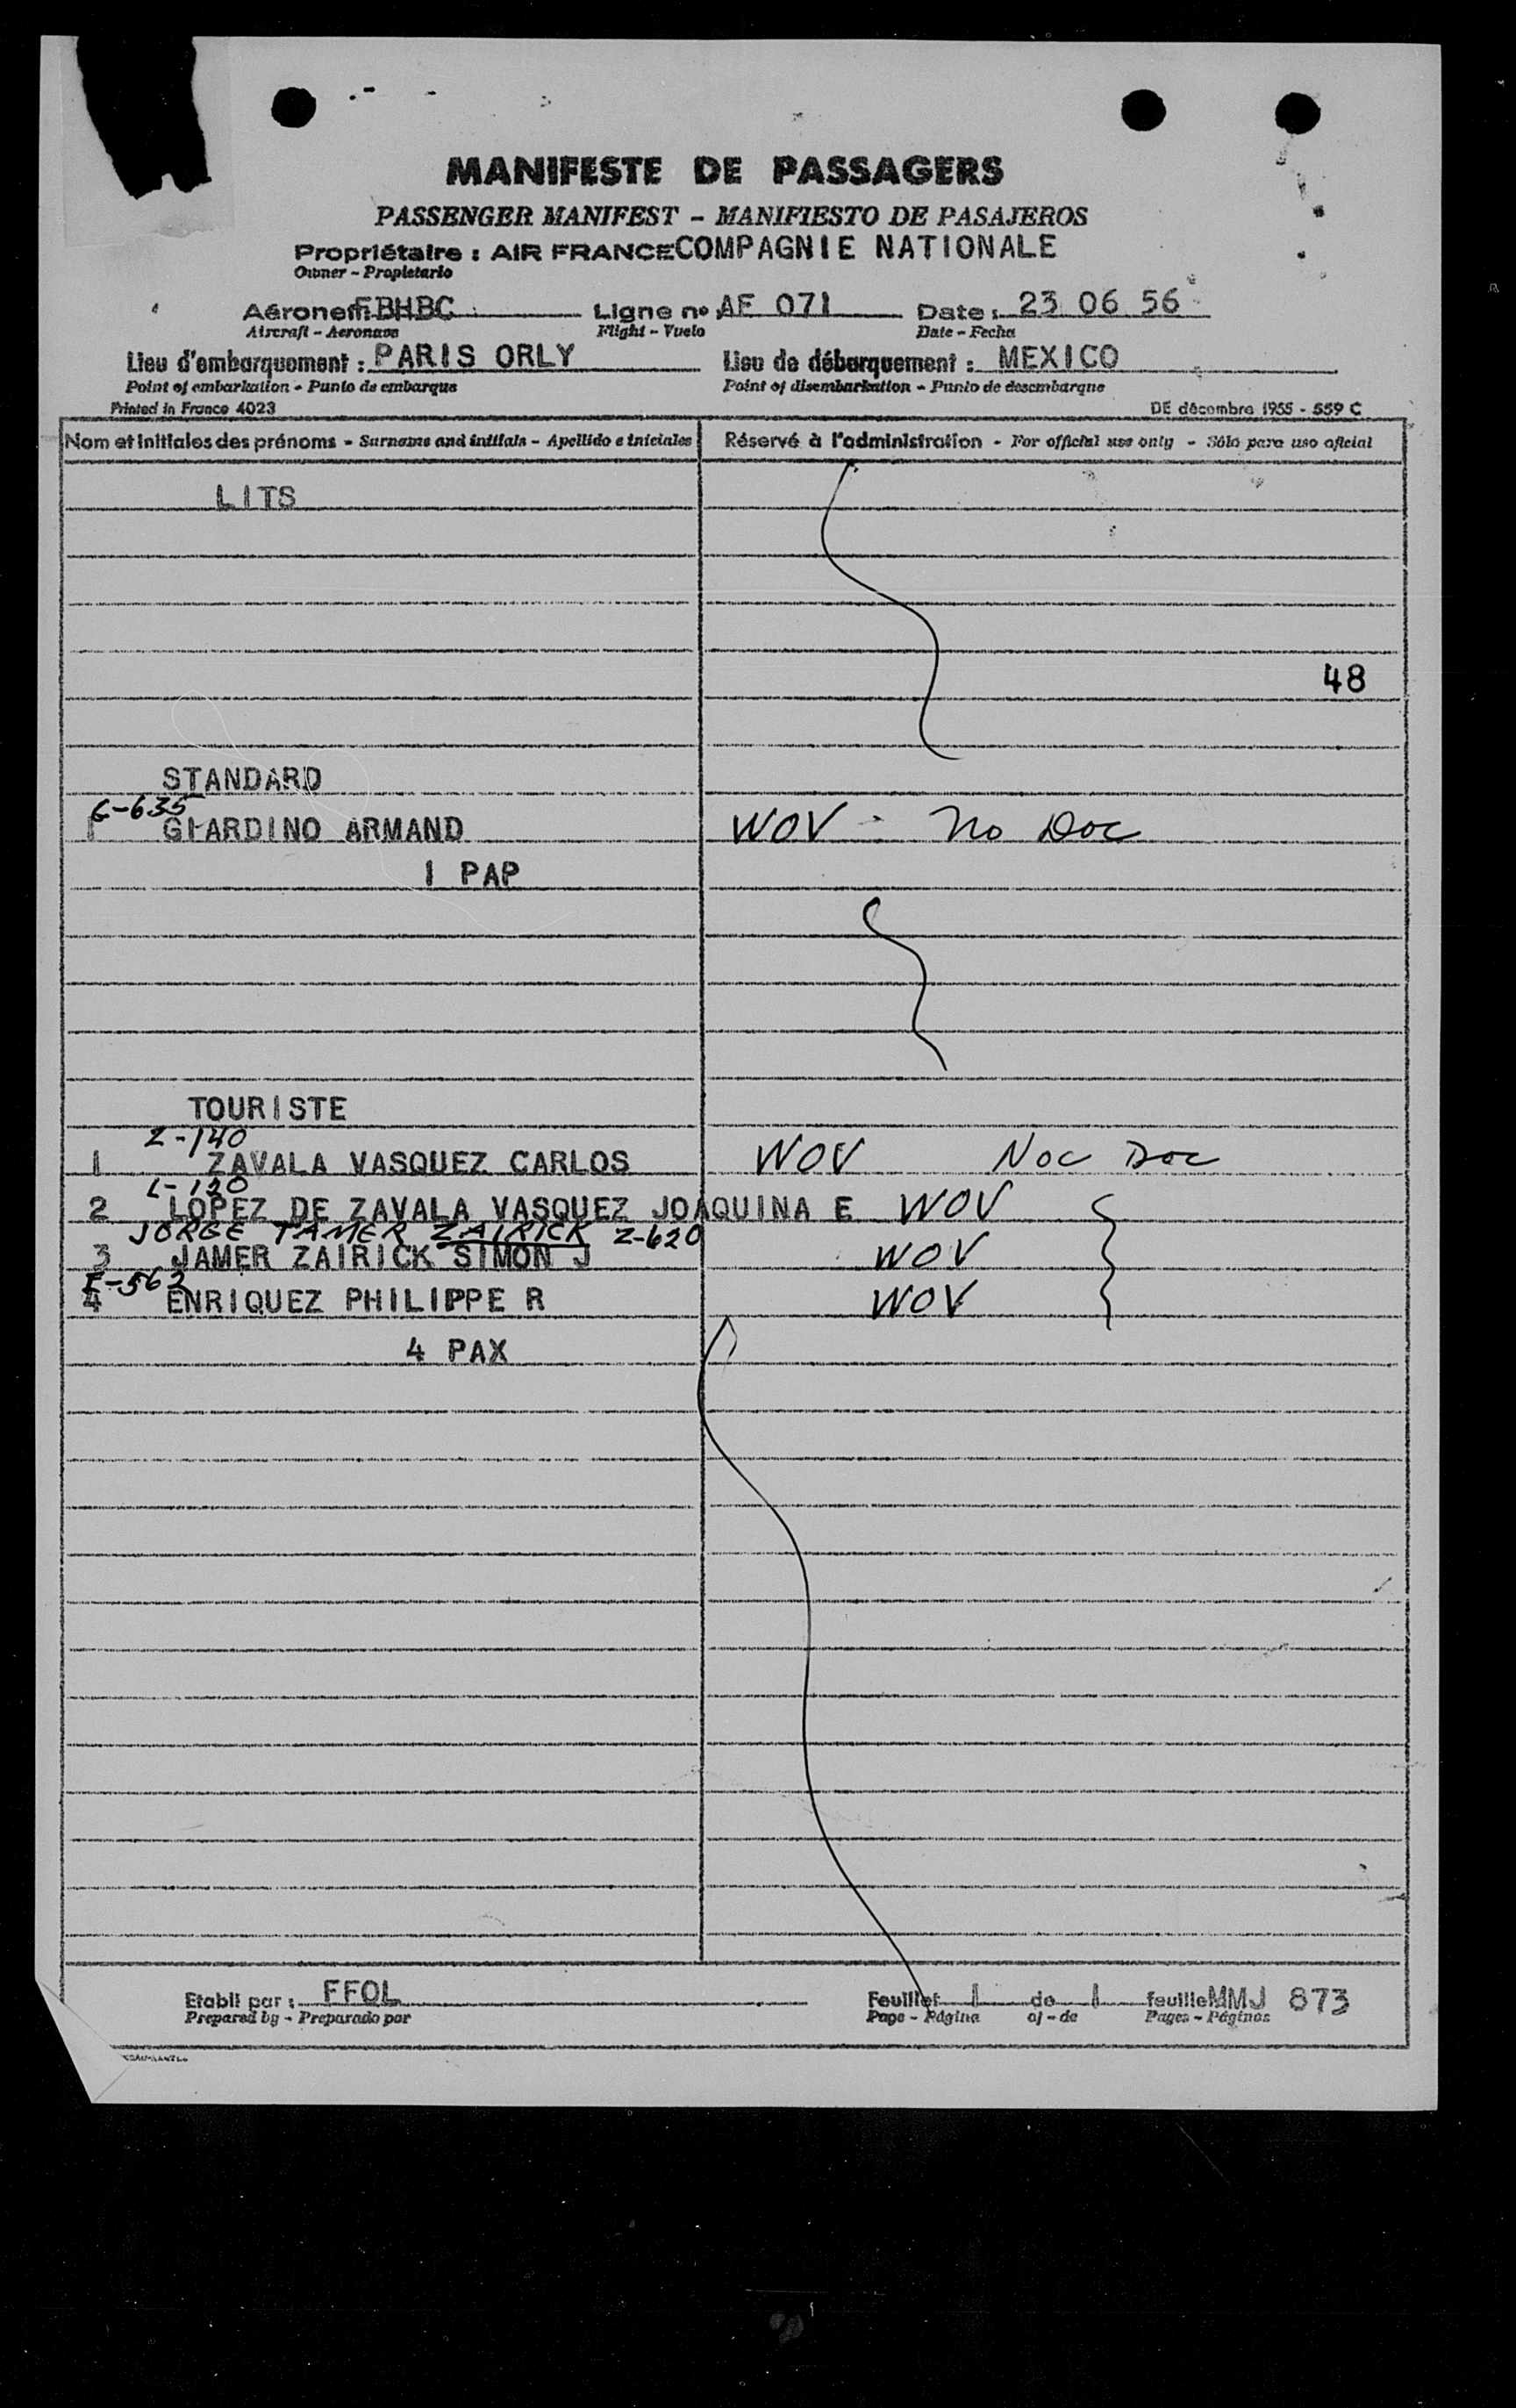 MANIFESTE DE PASSAGERS
PASSENGER MANIFEST - MANIFIESTO DE PASAJEROS
Propriétaire : AIR FRANCE COMPAGNIE NATIONALE
Owner - Propietario
Aéronef: FBHBC Ligne nº AF 071 Date : 23 06 56
Aircraft - Aeronave Flight - Vuelo Date - Fecha
Lieu d'embarquement : PARIS ORLY Lieu de débarquement : MEXICO
Point of embarkation - Punto de embarque Point of disembarkation - Punto de desembarque
Printed in France 4023 DE décembre 1955 - 559 C
Nom et initiales des prénoms - Surname and initials - Apellido e iniciales Réservé à l'administration - For official use only - Sólo para uso oficial
LITS
48
STANDARD
G-635
1 GIARDINO ARMAND WOV - No Doc
1 PAP
TOURISTE
Z-140
1 ZAVALA VASQUEZ CARLOS WOV Noc Doc
L-120
2 LOPEZ DE ZAVALA VASQUEZ JOAQUINA E WOV
JORGE TAMER ZAIRICK Z-620
3 JAMER ZAIRICK SIMON J WOV
E-562
4 ENRIQUEZ PHILIPPE R WOV
4 PAX
Etabli par : FFOL Feuillet 1 de 1 feuille MMJ 873
Prepared by - Preparado por Page - Página of - de Pages - Páginas